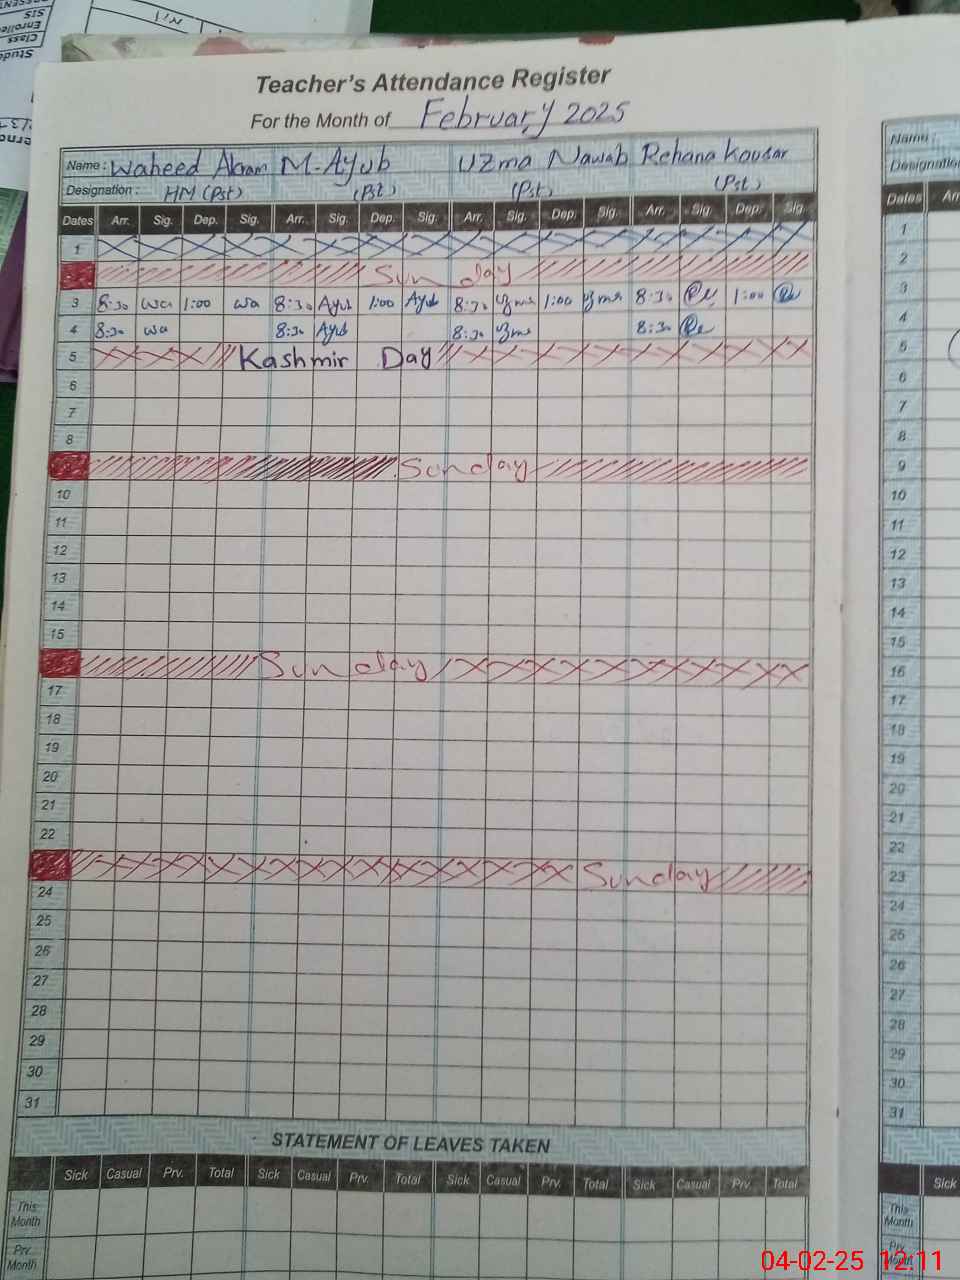 Teacher's Attendance Register
For the Month of February 2025
Name : Waheed Akram M-Ayub Uzma Nawab Rehana Kousar
Designation : HM (Pst) (Pst) (Pst) (Pst)
Dates Arr. Sig. Dep. Sig. Arr. Sig. Dep. Sig. Arr. Sig. Dep. Sig. Arr. Sig. Dep. Sig.
1
Sunday
3 8:30 wa 1:00 wa 8:30 Ayub 1:00 Ayub 8:30 Uzma 1:00 Uzma 8:30 1:00
4 8:30 wa 8:30 Ayub 8:30 Uzma 8:30
5 Kashmir Day
6
7
8
Sunday
10
11
12
13
14
15
Sunday
17
18
19
20
21
22
Sunday
24
25
26
27
28
29
30
31
STATEMENT OF LEAVES TAKEN
Sick Casual Prv. Total Sick Casual Prv. Total Sick Casual Prv. Total Sick Casual Prv. Total
This Month
Prv Month
Name :
Designation
Dates
1
2
3
4
5
6
7
8
9
10
11
12
13
14
15
16
17
18
19
20
21
22
23
24
25
26
27
28
29
30
31
Sick
This Month
Prv Month
SIS
Enrolle
Class
Stude
04-02-25 12:11